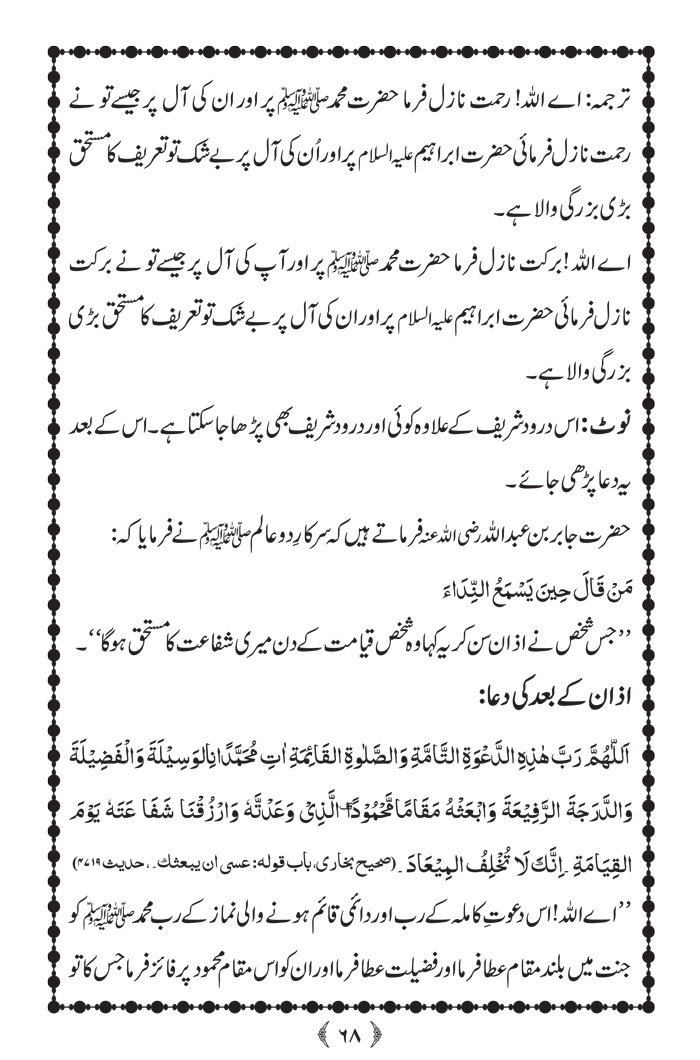 ترجمہ: اے اللہ! رحمت نازل فرما حضرت محمد ﷺ پر اور ان کی آل پر جیسے تو نے
رحمت نازل فرمائی حضرت ابراہیم علیہ السلام پر اور اُن کی آل پر بے شک تو تعریف کا مستحق
بڑی بزرگی والا ہے۔
اے اللہ! برکت نازل فرما حضرت محمد ﷺ پر اور آپ کی آل پر جیسے تو نے برکت
نازل فرمائی حضرت ابراہیم علیہ السلام پر اور ان کی آل پر بے شک تو تعریف کا مستحق بڑی
بزرگی والا ہے۔
نوٹ: اس درود شریف کے علاوہ کوئی اور درود شریف بھی پڑھا جا سکتا ہے۔ اس کے بعد
یہ دعا پڑھی جائے۔
حضرت جابر بن عبد اللہ رضی اللہ عنہ فرماتے ہیں کہ سرکارِ دو عالم ﷺ نے فرمایا کہ:
مَنْ قَالَ حِينَ يَسْمَعُ النِّدَاءَ
’’جس شخص نے اذان سن کر یہ کہا وہ شخص قیامت کے دن میری شفاعت کا مستحق ہوگا‘‘۔
اذان کے بعد کی دعا:
اَللّٰهُمَّ رَبَّ هٰذِهِ الدَّعْوَةِ التَّامَّةِ وَالصَّلٰوةِ القَائِمَةِ اٰتِ مُحَمَّدًا نِالوَسِيْلَةَ وَالْفَضِيْلَةَ
وَالدَّرَجَةَ الرَّفِيْعَةَ وَابْعَثْهُ مَقَامًا مَّحْمُوْدًا الَّذِىْ وَعَدْتَّهٗ وَارْزُقْنَا شَفَا عَتَهٗ يَوْمَ
القِيَامَةِ ۔ اِنَّكَ لَا تُخْلِفُ المِيْعَادَ ۔ (صحیح بخاری، باب قوله: عسی ان یبعثك۔۔، حدیث ۴۷۱۹)
’’اے اللہ! اس دعوتِ کاملہ کے رب اور دائمی قائم ہونے والی نماز کے رب محمد ﷺ کو
جنت میں بلند مقام عطا فرما اور فضیلت عطا فرما اور ان کو اس مقام محمود پر فائز فرما جس کا تو
﴿ ۶۸ ﴾